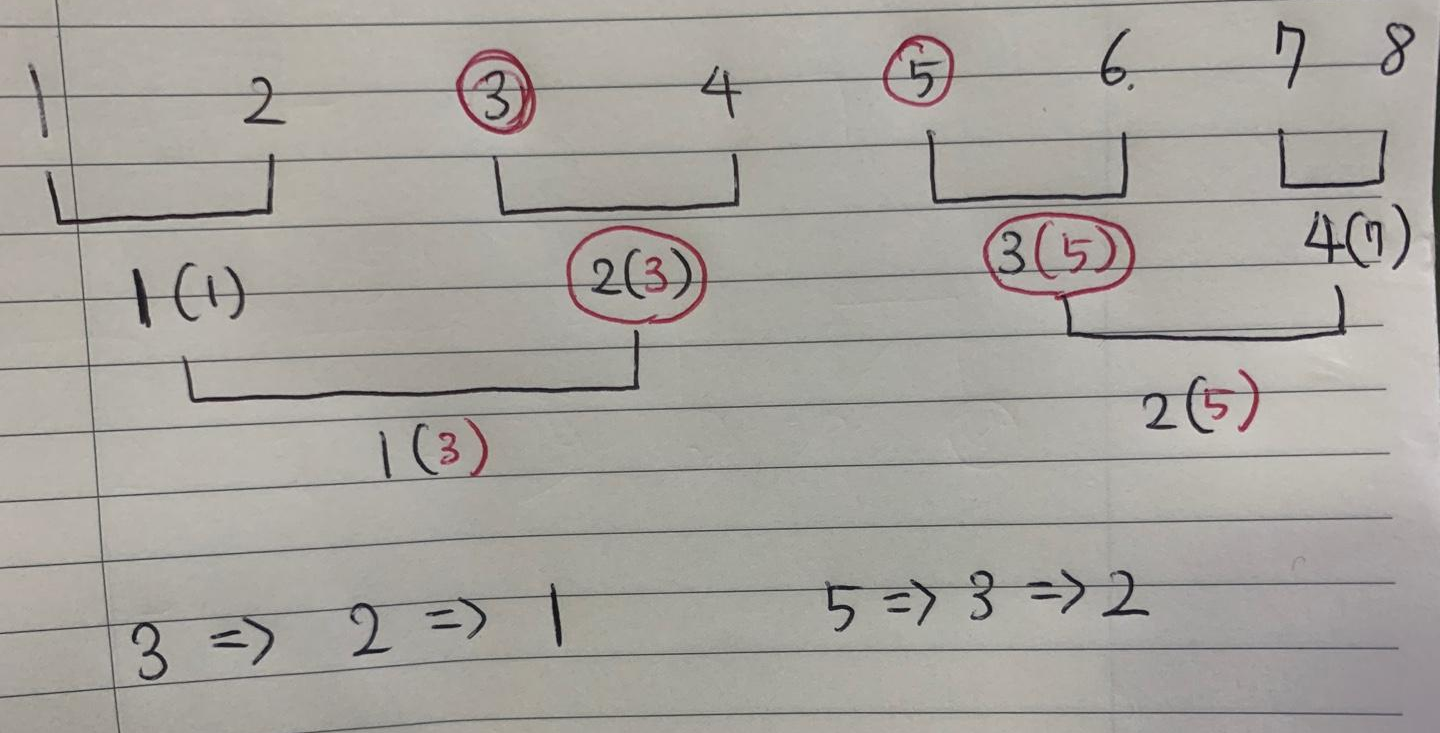 1 2 3 4 5 6. 7 8
1(1) 2(3) 3(5) 4(7)
1(3) 2(5)
3 => 2 => 1 5 => 3 => 2